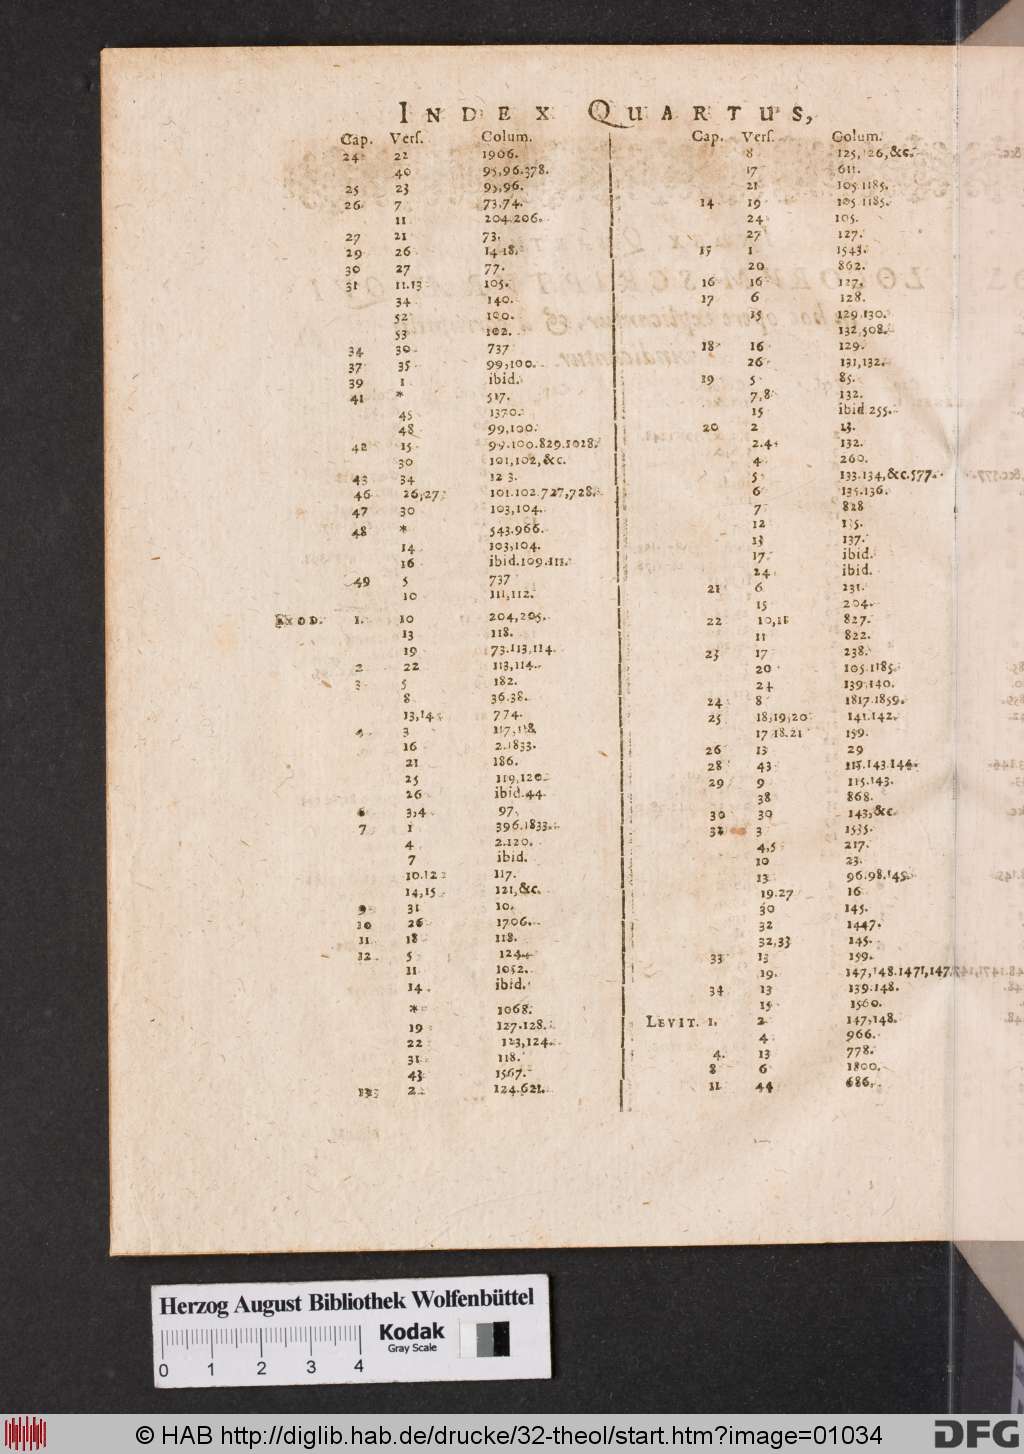 INDEX QUARTUS,
Cap. Vers. Colum.
24 22 1906.
40 95,96.378.
25 23 95,96.
26 7 73,74.
11 204.206.
27 21 73.
29 26 1418.
30 27 77.
31 11.13 105.
34 140.
52 100.
53 102.
34 30 737
37 35 99,100.
39 1 ibid.
41 * 517.
45 1370.
48 99,100.
42 15 99.100.829.1028.
30 101,102,&c.
43 34 12 3.
46 26,27 101.102.727,728.
47 30 103,104.
48 * 543.966.
14 103,104.
16 ibid.109.111.
49 5 737
10 111,112.
EXOD. 1. 10 204,205.
13 118.
19 73.113,114.
2 22 113,114.
3 5 182.
8 36.38.
13,14 774.
4 3 117,118
16 2.1833.
21 186.
25 119,120.
26 ibid.44.
6 3,4 97.
7 1 396.1833.
4 2.120.
7 ibid.
10.12 117.
14,15 121,&c.
9 31 10.
10 26 1706.
11 18 118.
12 5 124.
11 1052.
14 ibid.
* 1068.
19 127.128.
22 123,124.
31 118.
43 1567.
13 2 124.621.
Cap. Vers. Colum.
8 125,126,&c.
17 611.
21 105.1185.
14 19 105.1185.
24 105.
27 127.
15 1 1543.
20 862.
16 16 127.
17 6 128.
15 129.130.
132,508.
18 16 129.
26 131,132.
19 5 85.
7,8 132.
15 ibid.255.
20 2 13.
2.4 132.
4 260.
5 133.134,&c.577.
6 135.136.
7 828
12 115.
13 137.
17 ibid.
24 ibid.
21 6 231.
15 204.
22 10,11 827.
11 822.
23 17 238.
20 105.1185.
24 139,140.
24 8 1817.1859.
25 18,19,20 141.142.
17 18.21 159.
26 13 29
28 43 115.143.144.
29 9 115.143.
38 868.
30 30 143,&c.
32 3 1535.
4,5 217.
10 23.
13 96.98.145.
19.27 16
30 145.
32 1447.
32,33 145.
33 13 159.
19. 147,148.1471,147
34 13 139.148.
15 1560.
LEVIT. 1. 2 147,148.
4 966.
4. 13 778.
8 6 1800.
11 44 686.
Herzog August Bibliothek Wolfenbüttel
0 1 2 3 4
Kodak
Gray Scale
© HAB http://diglib.hab.de/drucke/32-theol/start.htm?image=01034
DFG